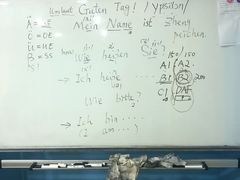 Umlaut Guten Tag! /Ypsilon/
Mein Name ist Zheng peichen.
Ä = AE
Ö = OE
Ü = UE
ß = SS
Wie heißen Sie?
150/150
A1 A2
→ Ich heiße
B1 B2 200
Wie bitte?
C1 DAF
→ Ich bin ....
(I am ....)